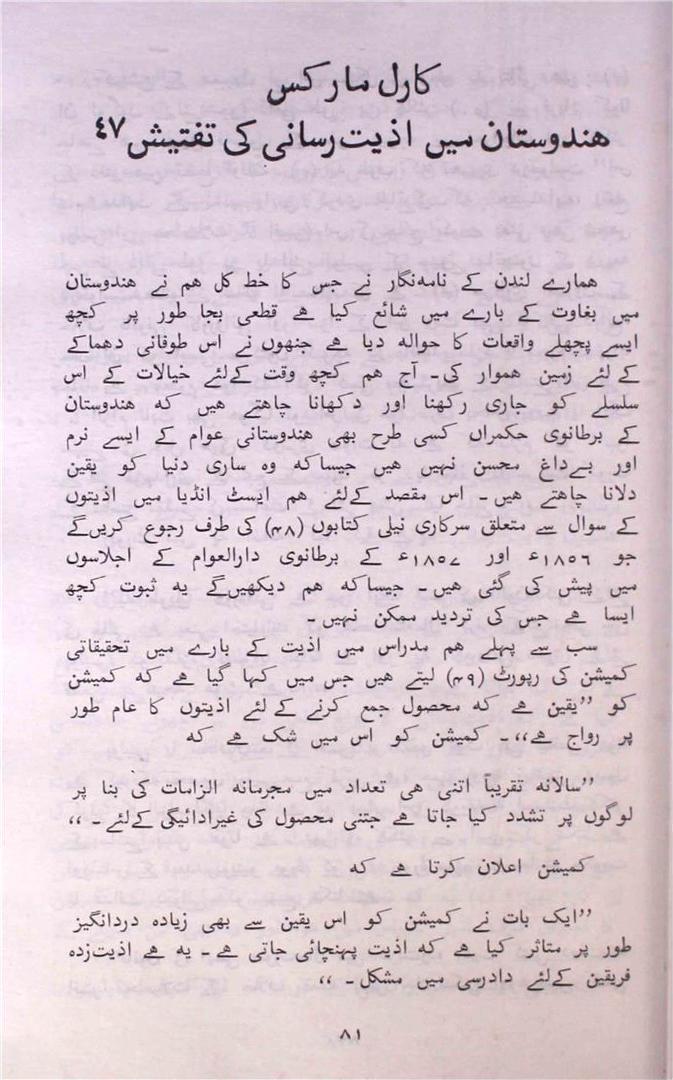 کارل مارکس
هندوستان میں اذیت رسانی کی تفتیش ۴۷
ہمارے لندن کے نامہ‌نگار نے جس کا خط کل ہم نے هندوستان
میں بغاوت کے بارے میں شائع کیا ہے قطعی بجا طور پر کچھ
ایسے پچھلے واقعات کا حوالہ دیا ہے جنھوں نے اس طوفانی دھماکے
کےلئے زمین ہموار کی۔ آج ہم کچھ وقت کےلئے خیالات کے اس
سلسلے کو جاری رکھنا اور دکھانا چاہتے ہیں کہ هندوستان
کے برطانوی حکمراں کسی طرح بھی هندوستانی عوام کے ایسے نرم
اور بےداغ محسن نہیں ہیں جیساکہ وہ ساری دنیا کو یقین
دلانا چاہتے ہیں۔ اس مقصد کےلئے ہم ایسٹ انڈیا میں اذیتوں
کے سوال سے متعلق سرکاری نیلی کتابوں (۴۸) کی طرف رجوع کریں‌گے
جو ۱۸۵۶ء اور ۱۸۵۷ء کے برطانوی دارالعوام کے اجلاسوں
میں پیش کی گئی ہیں۔ جیساکہ ہم دیکھیں‌گے یہ ثبوت کچھ
ایسا ہے جس کی تردید ممکن نہیں۔
سب سے پہلے ہم مدراس میں اذیت کے بارے میں تحقیقاتی
کمیشن کی رپورٹ (۴۹) لیتے ہیں جس میں کہا گیا ہے کہ کمیشن
کو ”یقین ہے کہ محصول جمع کرنے کےلئے اذیتوں کا عام طور
پر رواج ہے،،۔ کمیشن کو اس میں شک ہے کہ
”سالانہ تقریباً اتنی ہی تعداد میں مجرمانہ الزامات کی بنا پر
لوگوں پر تشدد کیا جاتا ہے جتنی محصول کی غیرادائیگی کےلئے۔ ،،
کمیشن اعلان کرتا ہے کہ
”ایک بات نے کمیشن کو اس یقین سے بھی زیادہ دردانگیز
طور پر متاثر کیا ہے کہ اذیت پہنچائی جاتی ہے۔ یہ ہے اذیت‌زدہ
فریقین کےلئے دادرسی میں مشکل۔ ،،
۸۱